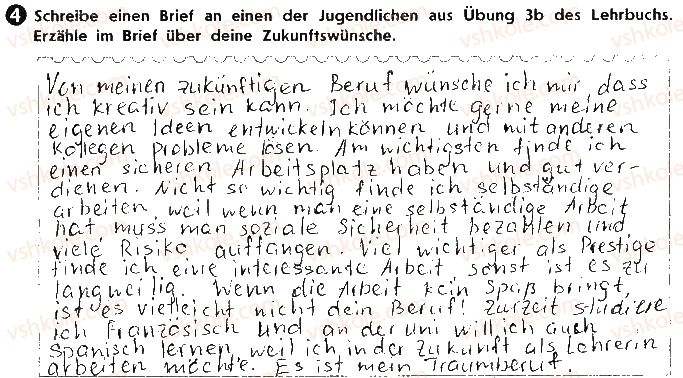 4 Schreibe einen Brief an einen der Jugendlichen aus Übung 3b des Lehrbuchs.
Erzähle im Brief über deine Zukunftswünsche.
Von meinen zukünftigen Beruf wünsche ich mir, dass
ich kreativ sein kann. Ich möchte gerne meine
eigenen Ideen entwickeln können und mit anderen
Kollegen probleme lösen. Am wichtigsten finde ich
einen sicheren Arbeitsplatz haben und gut ver-
dienen. Nicht so wichtig finde ich selbständige
arbeiten, weil wenn man eine selbständige Arbeit
hat muss man soziale Sicherheit bezahlen und
viele Risiko auffangen. Viel wichtiger als Prestige
finde ich eine interessante Arbeit sonst ist es zu
langweilig. Wenn die Arbeit kein Spaß bringt,
ist es vielleicht nicht dein Beruf! Zurzeit studiere
ich Französisch und an der Uni will ich auch
Spanisch lernen, weil ich in der Zukunft als Lehrerin
arbeiten möchte. Es ist mein Traumberuf.